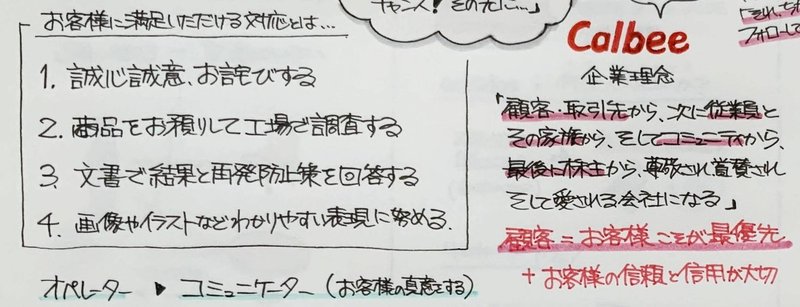 チャンス! その先に…
お客様に満足いただける対応とは…
1. 誠心誠意、お詫びする
2. 商品をお預りして工場で調査する
3. 文書で結果と再発防止策を回答する
4. 画像やイラストなどわかりやすい表現に努める.
オペレーター ▶ コミュニケーター (お客様の真意とする)
Calbee
企業理念
「顧客・取引先から、次に従業員と
その家族から、そしてコミュニティから、
最後に株主から、尊敬され賞賛され
そして愛される会社になる」
顧客=お客様こそが最優先
+お客様の信頼と信用が大切
フォローして